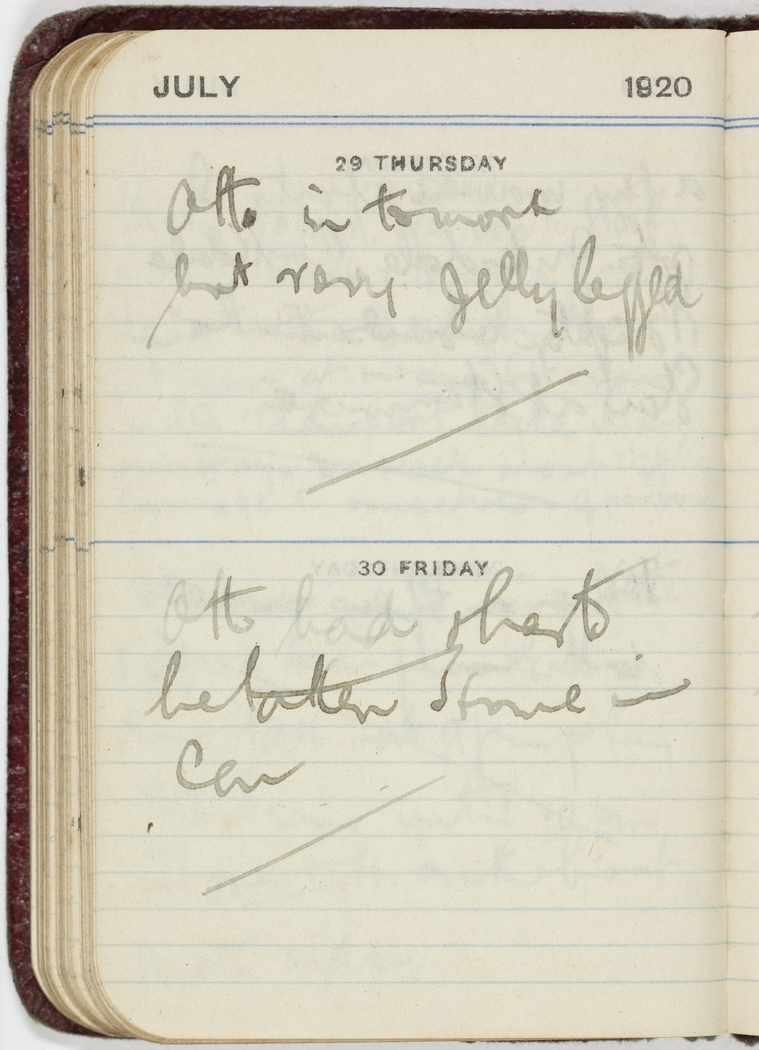 JULY 1920
29 THURSDAY
Otto in to work
but very Jelly legged
30 FRIDAY
Otto had
be taken home in
Car